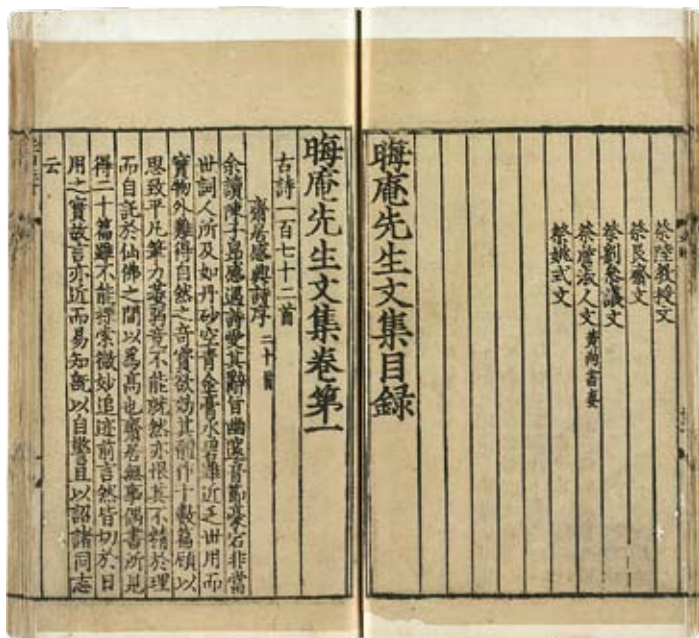 祭陸教授文
祭艮齋文
祭劉叅議文
祭詹淑人文 黄尚書妻
祭姚式文
晦庵先生文集目録
晦庵先生文集卷第一
古詩一百七十二首
齋居感興詩序 二十首
余讀陳子昂感遇詩愛其辭旨幽邃音節豪宕非當
世詞人所及如丹砂空青金膏水碧雖近乏世用而
實物外難得自然之奇寳欲効其體作十數篇顧以
思致平凡筆力萎弱竟不能就然亦恨其不精於理
而自託於仙佛之間以爲高也齋居無事偶書所見
得二十篇雖不能探索微妙追迹前言然皆切於日
用之實故言亦近而易知旣以自警且以詔諸同志
云